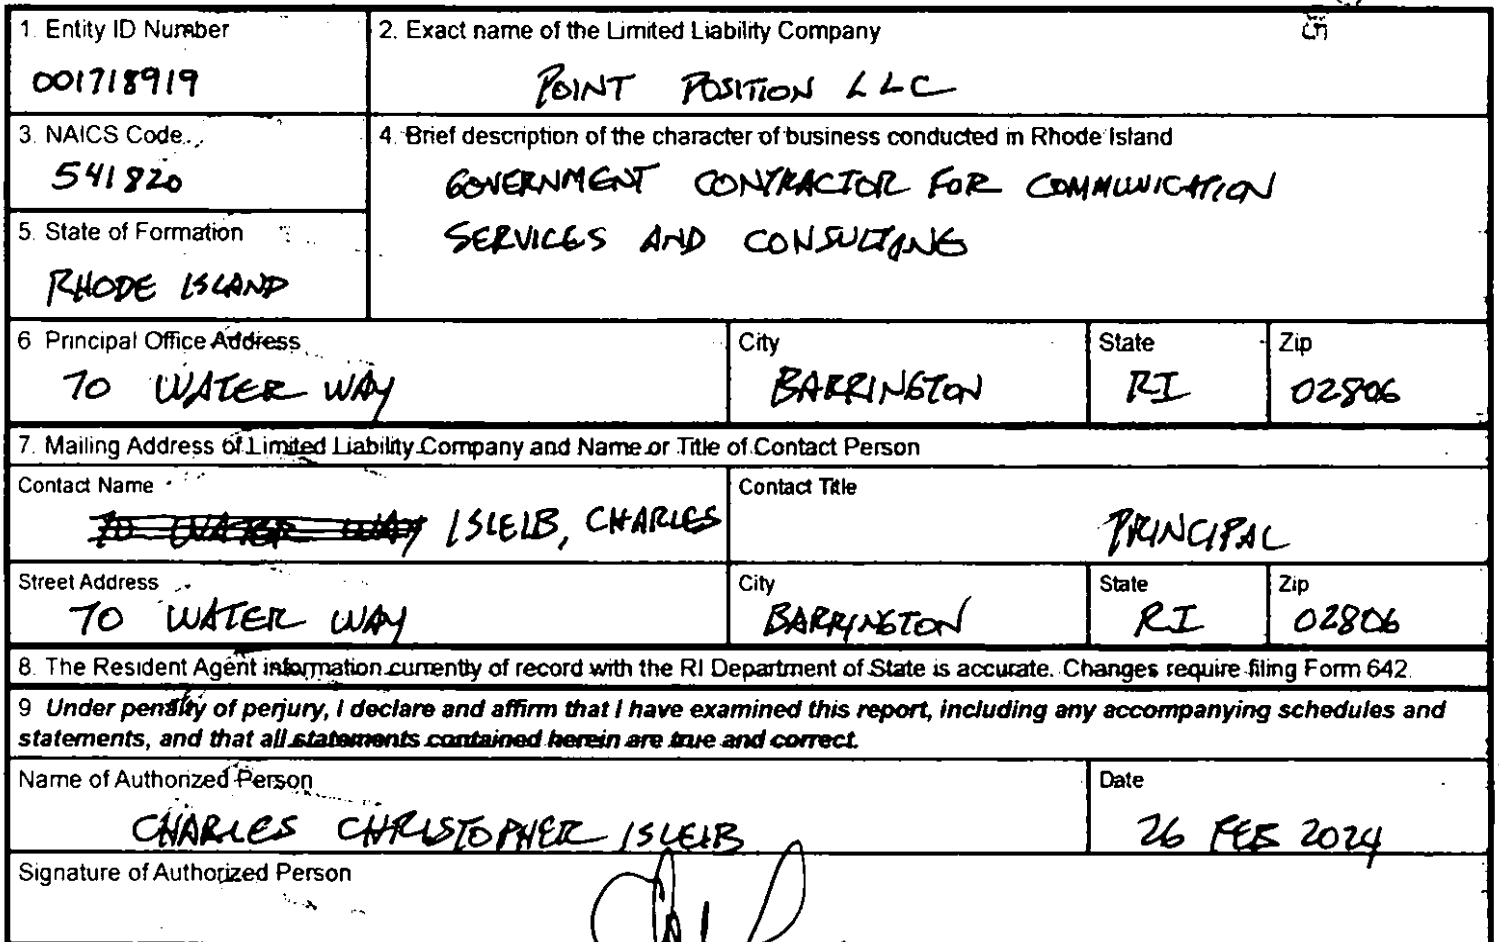 1. Entity ID Number
001718919
2. Exact name of the Limited Liability Company
POINT POSITION LLC
3. NAICS Code
541820
4. Brief description of the character of business conducted in Rhode Island
GOVERNMENT CONTRACTOR FOR COMMUNICATION
SERVICES AND CONSULTING
5. State of Formation
RHODE ISLAND
6 Principal Office Address
70 WATER WAY
City
BARRINGTON
State
RI
Zip
02806
7. Mailing Address of Limited Liability Company and Name or Title of Contact Person
Contact Name
70 WATER WAY ISLEIB, CHARLES
Contact Title
PRINCIPAL
Street Address
70 WATER WAY
City
BARRINGTON
State
RI
Zip
02806
8. The Resident Agent information currently of record with the RI Department of State is accurate. Changes require filing Form 642.
9 Under penalty of perjury, I declare and affirm that I have examined this report, including any accompanying schedules and
statements, and that all statements contained herein are true and correct.
Name of Authorized Person
CHARLES CHRISTOPHER ISLEIB
Date
26 FEB 2024
Signature of Authorized Person